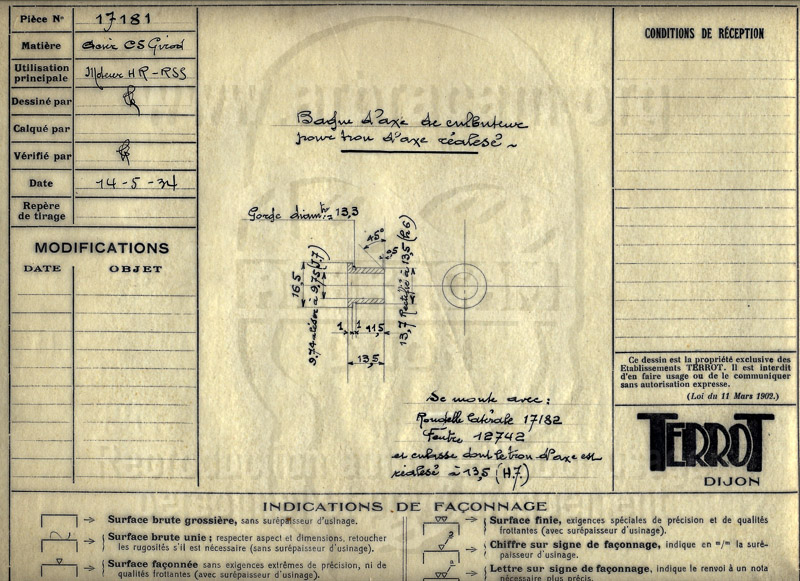 Pièce Nº 17181
Matière Acier CS Girod
Utilisation principale Moteur HR-RSS
Dessiné par
Calqué par
Vérifié par
Date 14-5-34
Repère de tirage
MODIFICATIONS
DATE OBJET
Bague d'axe de culbuteur
pour trou d'axe réalésé
Gorge diamtre 13,3
45°
0,5
16,5
9,74 alésé à 9,75 (J.7)
13,7 Rectifié à 13,5 (P.6)
1 1 11,5
13,5
Se monte avec :
Rondelle latérale 17182
Feutre 12742
et culasse dont le trou d'axe est
réalésé à 13,5 (H.7)
CONDITIONS DE RÉCEPTION
Ce dessin est la propriété exclusive des
Etablissements TERROT. Il est interdit
d'en faire usage ou de le communiquer
sans autorisation expresse.
(Loi du 11 Mars 1902.)
TERROT
DIJON
INDICATIONS DE FAÇONNAGE
Surface brute grossière, sans surépaisseur d'usinage.
Surface brute unie; respecter aspect et dimensions, retoucher
les rugosités s'il est nécessaire (sans surépaisseur d'usinage).
Surface façonnée sans exigences extrêmes de précision, ni de
qualités frottantes (avec surépaisseur d'usinage).
Surface finie, exigences spéciales de précision et de qualités
frottantes (avec surépaisseur d'usinage).
Chiffre sur signe de façonnage, indique en m/m la surépaisseur
d'usinage.
Lettre sur signe de façonnage, indique le renvoi à un nota
nécessaire plus précis.